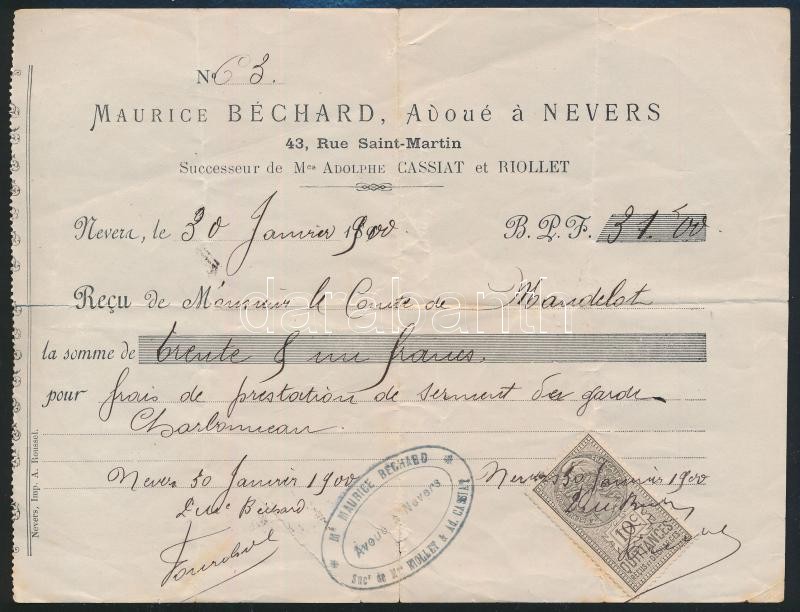 No C 3.
MAURICE BÉCHARD, Avoué à NEVERS
43, Rue Saint-Martin
Successeur de Mes ADOLPHE CASSIAT et RIOLLET
Nevers, le 30 Janvier 1900 B. P. F. 31.00
Reçu de Monsieur le Comte de Mandelot
la somme de trente & un francs.
pour frais de prestation de serment du garde
Charbonneau.
Nevers 30 Janvier 1900
Nevers 30 Janvier 1900
Me MAURICE BÉCHARD
Avoué à Nevers
Sucr de Mes RIOLLET & Ad. CASSIAT
10c
QUITTANCES
Nevers, Imp. A. Rousset.
darabanth